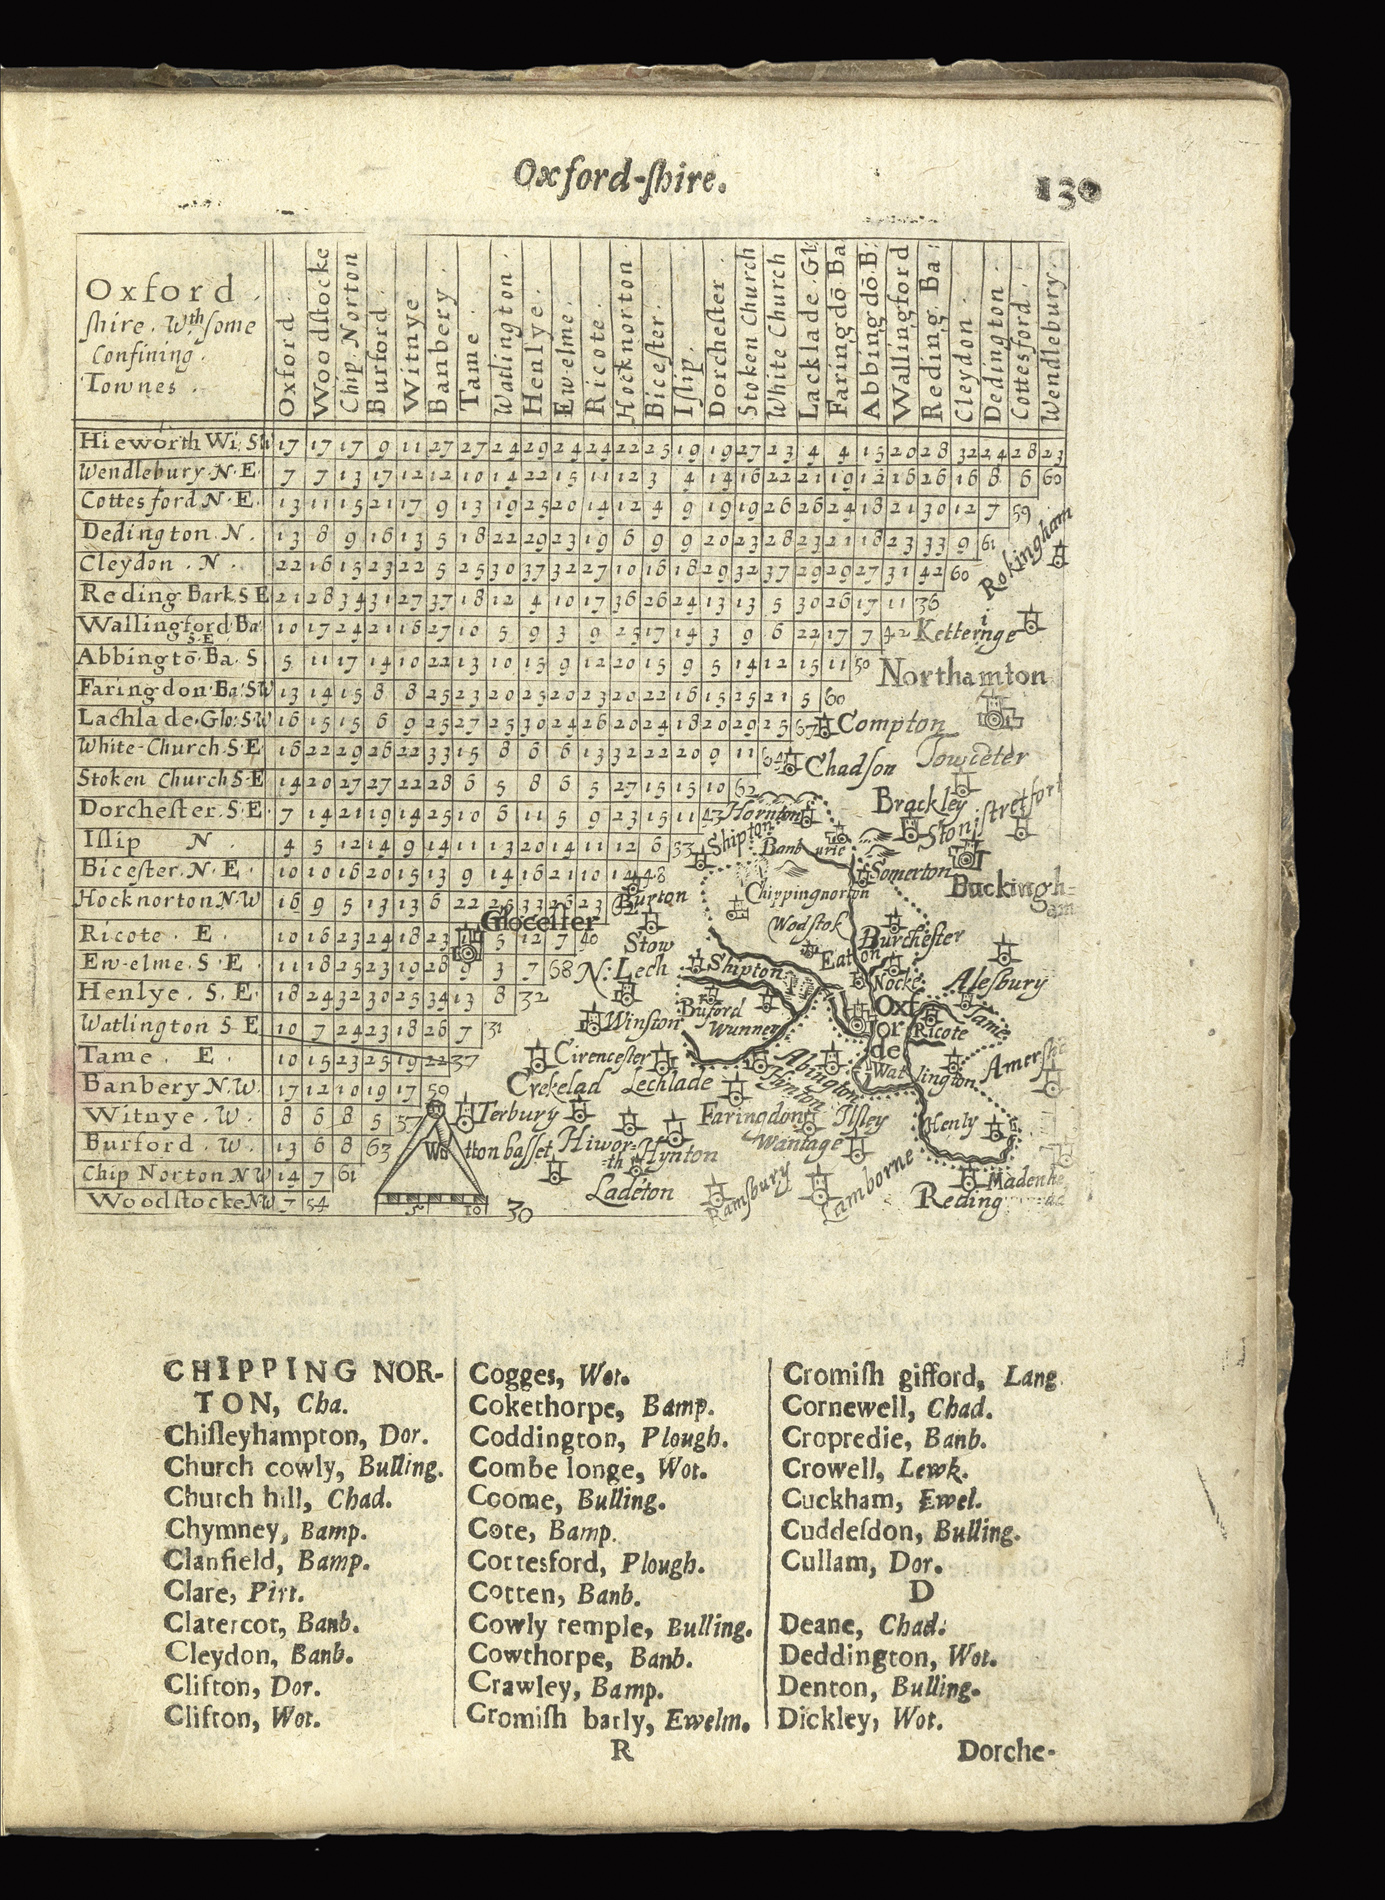 Oxford-ſhire.
130
Oxford
ſhire. Wth ſome
Confining.
Townes.
Oxford.
Woodſtocke
Chip. Norton
Burford.
Witnye
Banbery.
Tame.
Watlington.
Henlye.
Ewelme.
Ricote.
Hocknorton.
Biceſter.
Iſlip.
Dorcheſter.
Stoken Church
White Church
Lacklade. Gl:
Faringdō Ba
Abbingdō. B:
Wallingford
Reding. Ba:
Cleydon.
Dedington.
Cottesford.
Wendlebury.
Hieworth Wi: 17 17 17 9 11 27 27 24 29 24 24 22 25 19 19 27 23 4 4 15 20 28 32 24 28 23
Wendlebury. N. E. 7 7 13 17 12 12 10 14 22 15 11 12 3 4 14 16 22 21 19 12 16 26 16 8 6 60
Cottesford N. E. 13 11 15 21 17 9 13 19 25 20 14 12 4 9 19 19 26 26 24 18 21 30 12 7 59
Dedington. N. 13 8 9 16 13 5 18 22 29 23 19 6 9 9 20 23 28 23 21 18 23 33 9 61
Cleydon. N. 22 16 15 23 22 5 25 30 37 32 27 10 16 18 29 32 37 29 29 27 31 42 60
Reding Bark. S E 21 28 34 31 27 37 18 12 4 10 17 36 26 24 13 13 5 30 26 17 11 36
Wallingford Ba: S. E 10 17 24 21 16 27 10 5 9 3 9 25 17 14 3 9 6 22 17 7 42
Abbingtō. Ba. S 5 11 17 14 10 22 13 10 15 9 12 20 15 9 5 14 12 15 11 50
Faringdon. Ba: SW 13 14 15 8 8 25 23 20 25 20 23 20 22 16 15 25 21 5 60
Lachlade. Glo: S. W 16 15 15 6 9 25 27 25 30 24 26 20 24 18 20 29 25 67
White-Church. S. E 16 22 29 26 22 33 15 8 6 6 13 32 22 20 9 11 64
Stoken Church S. E 14 20 27 27 22 28 6 5 8 6 5 27 15 15 10 62
Dorcheſter. S. E 7 14 21 19 14 25 10 6 11 5 9 23 15 11 43
Iſlip N. 4 5 12 14 9 14 11 13 20 14 11 12 6 53
Biceſter. N. E. 10 10 16 20 15 13 9 14 16 21 10 14 48
Hocknorton N. W 16 9 5 13 13 6 22 25 33 26 23
Ricote. E. 10 16 23 24 18 23 5 12 7 40
Ew-elme. S. E. 11 18 25 23 19 28 9 3 7 68
Henlye. S. E. 18 24 32 30 25 34 13 8 32
Watlington S-E 10 7 24 23 18 26 7 31
Tame. E. 10 15 23 25 19 22 37
Banbery N. W. 17 12 10 19 17 59
Witnye. W. 8 6 8 5 57
Burford. W. 13 6 8 63
Chip Norton N W 14 7 61
Woodſtocke NW 7 54
Rokingham
Ketteringe
Northamton
Compton
Chadſon
Towceter
Brackley
Stonistretfort
Hornton
Shipton
Banburie
Somerton
Buckingham
Chippingnorton
Burton
Gloceſter
Wodſtok
Burcheſter
Stow
Eaton
N: Lech
Shipton
Nocke
Aleſbury
Oxforde
Tame
Buford
Winſton
Wunney
Ricote
Cirenceſter
Abington
Watlington
Amerſha
Crekelad
Lechlade
Hynton
Terbury
Faringdon
Ilſley
Henly
Wotton baſſet
Hiworth
Hynton
Wantage
Ladeton
Ramſbury
Lamborne
Reding
Madenhead
5 10
30
CHIPPING NOR-
TON, Cha.
Chiſleyhampton, Dor.
Church cowly, Bulling.
Church hill, Chad.
Chymney, Bamp.
Clanfield, Bamp.
Clare, Pirt.
Clatercot, Banb.
Cleydon, Banb.
Clifton, Dor.
Clifton, Wot.
Cogges, Wot.
Cokethorpe, Bamp.
Coddington, Plough.
Combe longe, Wot.
Coome, Bulling.
Cote, Bamp.
Cottesford, Plough.
Cotten, Banb.
Cowly temple, Bulling.
Cowthorpe, Banb.
Crawley, Bamp.
Cromiſh barly, Ewelm.
Cromiſh gifford, Lang.
Cornewell, Chad.
Cropredie, Banb.
Crowell, Lewk.
Cuckham, Ewel.
Cuddeſdon, Bulling.
Cullam, Dor.
D
Deane, Chad.
Deddington, Wot.
Denton, Bulling.
Dickley, Wot.
R
Dorche-